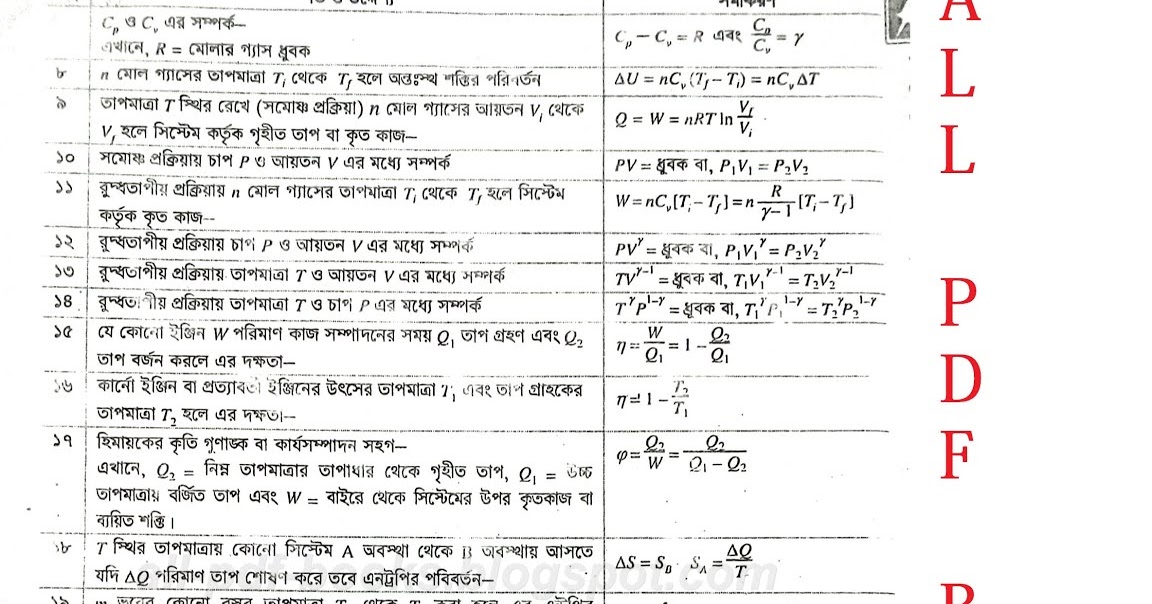 C_p ও C_v এর সম্পর্ক—
এখানে, R = মোলার গ্যাস ধ্রুবক
C_p − C_v = R এবং C_p/C_v = γ
৮ n মোল গ্যাসের তাপমাত্রা T_i থেকে T_f হলে অন্তঃস্থ শক্তির পরিবর্তন
ΔU = nC_v (T_f − T_i) = nC_v ΔT
৯ তাপমাত্রা T স্থির রেখে (সমোষ্ণ প্রক্রিয়া) n মোল গ্যাসের আয়তন V_i থেকে
V_f হলে সিস্টেম কর্তৃক গৃহীত তাপ বা কৃত কাজ—
Q = W = nRT ln V_f/V_i
১০ সমোষ্ণ প্রক্রিয়ায় চাপ P ও আয়তন V এর মধ্যে সম্পর্ক
PV = ধ্রুবক বা, P₁V₁ = P₂V₂
১১ রুদ্ধতাপীয় প্রক্রিয়ায় n মোল গ্যাসের তাপমাত্রা T_i থেকে T_f হলে সিস্টেম
কর্তৃক কৃত কাজ--
W = nC_v[T_i − T_f] = n R/γ−1 [T_i − T_f]
১২ রুদ্ধতাপীয় প্রক্রিয়ায় চাপ P ও আয়তন V এর মধ্যে সম্পর্ক
PV^γ = ধ্রুবক বা, P₁V₁^γ = P₂V₂^γ
১৩ রুদ্ধতাপীয় প্রক্রিয়ায় তাপমাত্রা T ও আয়তন V এর মধ্যে সম্পর্ক
TV^γ−1 = ধ্রুবক বা, T₁V₁^γ−1 = T₂V₂^γ−1
১৪ রুদ্ধতাপীয় প্রক্রিয়ায় তাপমাত্রা T ও চাপ P এর মধ্যে সম্পর্ক
T^γP^1−γ = ধ্রুবক বা, T₁^γP₁^1−γ = T₂^γP₂^1−γ
১৫ যে কোনো ইঞ্জিন W পরিমাণ কাজ সম্পাদনের সময় Q₁ তাপ গ্রহণ এবং Q₂
তাপ বর্জন করলে এর দক্ষতা—
η = W/Q₁ = 1 − Q₂/Q₁
১৬ কার্নো ইঞ্জিন বা প্রত্যাবর্তী ইঞ্জিনের উৎসের তাপমাত্রা T₁ এবং তাপ গ্রাহকের
তাপমাত্রা T₂ হলে এর দক্ষতা—
η = 1 − T₂/T₁
১৭ হিমায়কের কৃতি গুণাঙ্ক বা কার্যসম্পাদন সহগ—
এখানে, Q₂ = নিম্ন তাপমাত্রার তাপাধার থেকে গৃহীত তাপ, Q₁ = উচ্চ
তাপমাত্রায় বর্জিত তাপ এবং W = বাইরে থেকে সিস্টেমের উপর কৃতকাজ বা
ব্যয়িত শক্তি।
φ = Q₂/W = Q₂/Q₁ − Q₂
১৮ T স্থির তাপমাত্রায় কোনো সিস্টেম A অবস্থা থেকে B অবস্থায় আসতে
যদি ΔQ পরিমাণ তাপ শোষণ করে তবে এনট্রপির পরিবর্তন—
ΔS = S_B S_A = ΔQ/T
A
L
L
P
D
F